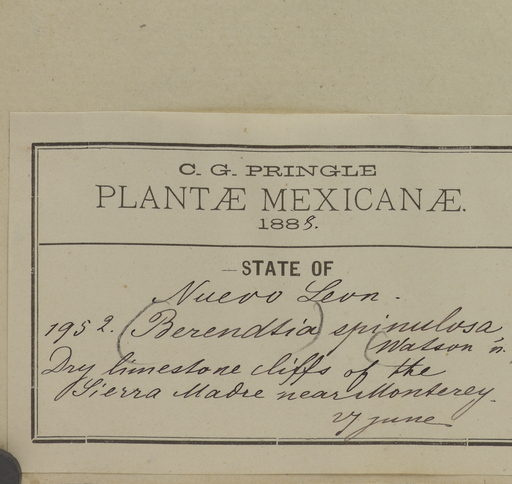 C. G. PRINGLE
PLANTÆ MEXICANÆ.
1888.
STATE OF
Nuevo Leon.
1952. (Berendtia) spinulosa
(Watson n.
Dry limestone cliffs of the
Sierra Madre near Monterey.
27 June